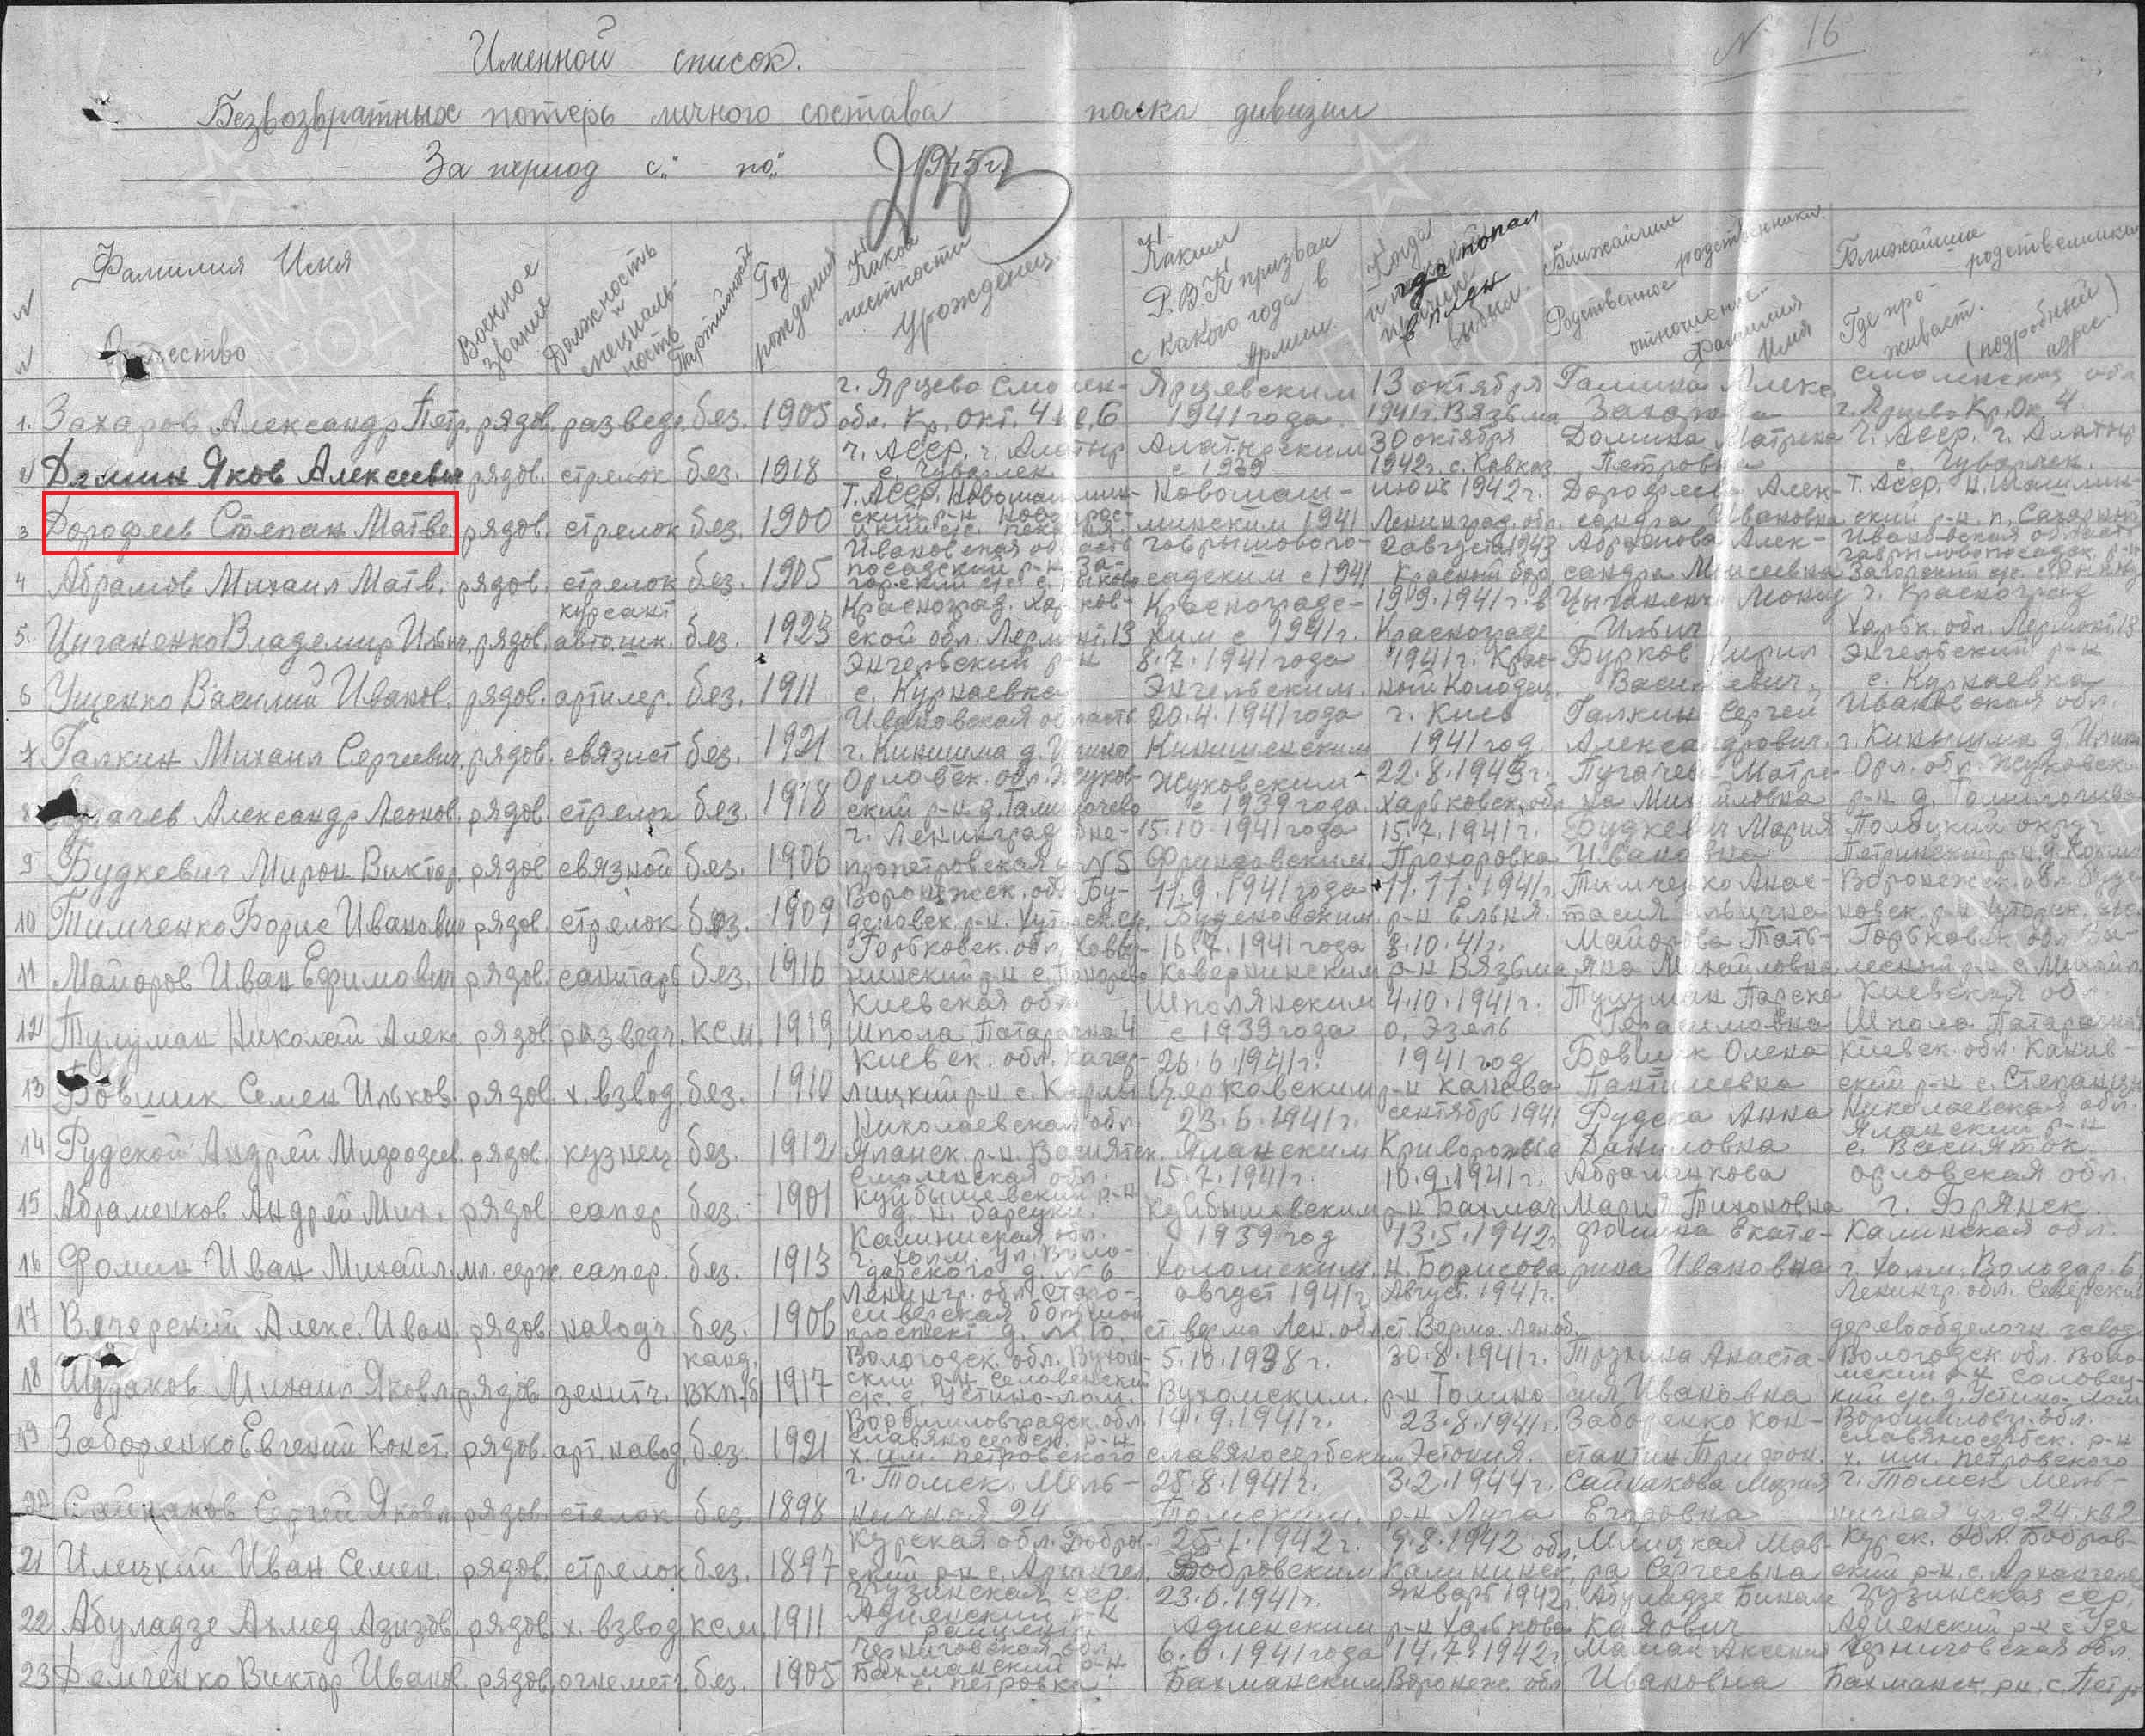 № 16
Именной список.
Безвозвратных потерь личного состава полка дивизии
За период с " по " 1945 г.
№ № Фамилия Имя Отчество
Военное звание
Должность и специальность
Партийность
Год рождения
Какой местности урожденец
Каким Р.В.К призван с какого года в Армии
Когда и где попал в плен
Ближайшии родственники. Родственное отношение. Фамилия Имя
Ближайшии родственники Где проживает. (подробный адрес.)
1. Захаров Александр Петр. рядов. разведч. без. 1905 г. Ярцево Смолен- обл. Кр. Окт. 4 кв. 6 Ярцевским 1941 года. 13 октября 1941 г. Вязьма Галина Алекс. Смоленская обл. г. Ярцево Кр. Ок. 4
2 Демин Яков Алексеевич рядов. стрелок без. 1918 ч. АССР. г. Алатыр с. Чуварлеи Алатырским с 1939 30 октября 1942 г. с. Кавказ Домина Матрена Петровна Ч. АССР. г. Алатыр с. Чуварлеи.
3 Дорофеев Степан Матве. рядов. стрелок без. 1900 Т. АССР. Новошашмин- ский р-н Новошаш- минским 1941 июнь 1942 г. Ленинград. обл. Дорофеева Алек- сандра Ивановна Т. АССР. Н. Шашмин- ский р-н
4 Абрамов Михаил Матв. рядов. стрелок без. 1905 Ивановская область посадский р-н садским с 1941 2 августа 1943 Красный бор Абрамова Алек- сандра Моисеевна Ивановская область
5. Цыганенко Владемир Ильич. рядов. курсант автошк. без. 1923 Красноград. Харьков- ской обл. Лермонт. 13 Красноградс- ким с 1941 г. 19.9.1941 г. в Краснограде Цыганенко Леонид Ильич г. Красноград Харьк. обл. Лермонт. 13
6 Ущенко Василий Иванов. рядов. артилер. без. 1911 Энгельский р-н с. Курнаевка 8.7.1941 года Энгельским. 1941 г. Крас- ный Колодец. Бурков Кирил Васильевич. Энгельский р-н с. Курнаевка
7 Галкин Михаил Сергеевич. рядов. связист без. 1921 Ивановская область г. Кинишма д. 20.4.1941 года Кинишенским г. Киев 1941 год. Галкин Сергей Александрович. Ивановская обл. г. Кинышма д.
8 Пугачев Александр Леонов. рядов. стрелок без. 1918 Орловск. обл. Жуков- ский р-н д. Жуковским с 1939 года. 22.8.1943 г. Харьковск. обл. Пугачева Матре- на Михайловна Орл. обл. Жуковский р-н д.
9 Будкевич Мирон Виктор. рядов. связной без. 1906 г. Ленинград Дне- пропетровская ул. № 5 15.10.1941 года Фрунзовским 15.7.1941 г. Прохоровка Будкевич Мария Ивановна Полоцкий округ
10 Тимченко Борис Иванович рядов. стрелок без. 1909 Воронежск. обл. Бу- деновск. р-н. 11.9.1941 года Буденовским 11.11.1941 г. р-н Ельня. Тимченко Анас- тасия Ильична Воронежск. обл. Буде- новск. р-н
11 Майоров Иван Ефимович рядов. санитарь без. 1916 Горьковск. обл. Ковер- нинский р-н с. 16.7.1941 года Ковернинским 8.10.41 г. р-н Вязьма Майорова Тать- яна Михайловна Горьковск. обл.
12 Тулуман Николай Алек. рядов. разведч. КСМ. 1919 Киевская обл. Шпола Шполянским с 1939 года 4.10.1941 г. о. Эзель Тулуман Параска Герасимовна Киевская обл. Шпола
13 Бовшик Семен Ильков. рядов. х. взвод. без. 1910 Киевск. обл. Кагар- лицкий р-н с. 26.6.1941 г. Церковским 1941 год р-н Канева Бовшик Олена Пантилеевна Киевск. обл. Канев- ский р-н с. Степанцы
14 Рудской Андрей Мидродеев. рядов. кузнец без. 1912 Николаевская обл. Яланск. р-н. Васиятск. 23.6.1941 г. Яланским сентябрь 1941 Криворожье Рудска Анна Даниловна Николаевская обл. Яланский р-н с. Васияток
15 Абраменков Андрей Мих. рядов сапер без. 1901 Смоленская обл. Куйбышевский р-н 15.7.1941 г. Куйбышевским 10.9.1941 г. р-н Бахмач Абраменкова Мария Тихоновна орловская обл. г. Брянск.
16 Фомин Иван Михайл. мл. серж. сапер. без. 1913 Калининская обл. г. Холм. ул. Воло- дарского д. № 6 1939 год Холомским. 13.5.1942 г. н. Борисова Фомина Екате- рина Ивановна Калинская обл. г. Холм. Володар. 6
17 Вечерский Алекс. Иван. рядов. наводч. без. 1906 Ленингр. обл. Старо- сиверская большой проспект д. № 10. август 1941 г. ст. верма Лен. обл. Август. 1941 г. ст. Верма Лен. об. Ленингр. обл. Северский деревообделочн. завод
18 Шудаков Михаил Яковл. рядов зенитч. канд. ВКП(б) 1917 Вологодск. обл. Вухом- ский р-н Селовенский с/с. д. Устино-лом. 5.10.1938 г. Вухомским. 30.8.1941 г. р-н Томино Анаста- сия Ивановна Вологодск. обл. с/с. д. Устино-лом
19 Заборенко Евгений Конст. рядов. арт. навод. без. 1921 Ворошиловградск. обл. славяносербск. р-н х. им. Петровского 14.9.1941 г. славяносербским 23.8.1941 г. Эстония. Заборенко Кон- стантин Трифон. Ворошиловг. обл. славяносербск. р-н х. им. Петровского
20 Сайнаков Сергей Яковл. рядов. стелок без. 1898 г. Томск. Мель- ничная 24 28.8.1941 г. Томским. 3.2.1944 г. р-н Луга Сайнакова Мария Егоровна г. Томск Мель- ничная ул. д 24. кв 2
21 Илецкий Иван Семен. рядов. стрелок без. 1897 Курская обл. Бобров- ский р-н с. Архангел. 25.1.1942 г. Бобровским 9.8.1942 обл. Калининск. Илицкая Мав- ра Сергеевна Курск. обл. Бобров- ский р-н. с. Архангел
22 Абуладзе Ахмед Азизов. рядов. х. взвод КСМ. 1911 Грузинская сср. Адиенский р-н 23.6.1941 г. Адиенским январь 1942 г. р-н Харькова Абуладзе Бинали Каяович Грузинская сср. Адиенский р-н с.
23 Демченко Виктор Иванов. рядов. огнеметч. без. 1905 Черниговская обл. Бахманский р-н с. Петровка 6.6.1941 года Бахманским 14.7.1942 г. Воронеж. обл Мамай Аксения Ивановна Черниговская обл. Бахманск. рн. с. Петр
ПАМЯТЬ НАРОДА